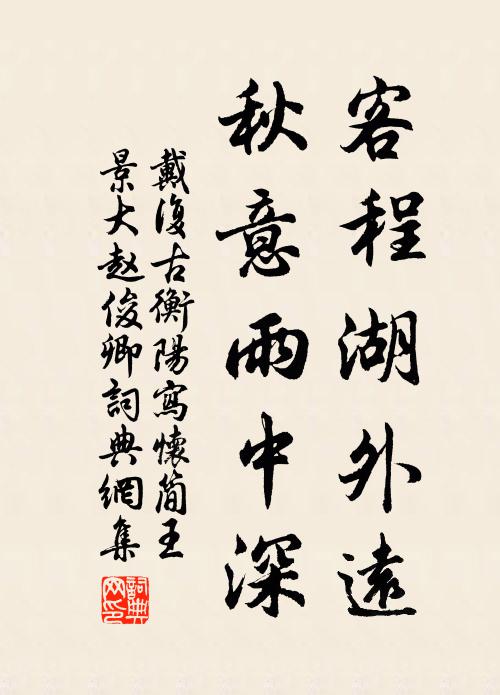 客程湖外遠
秋意雨中深
戴復古衡陽寫懷簡王
景大赵俊卿詞典網集
詞典
网印